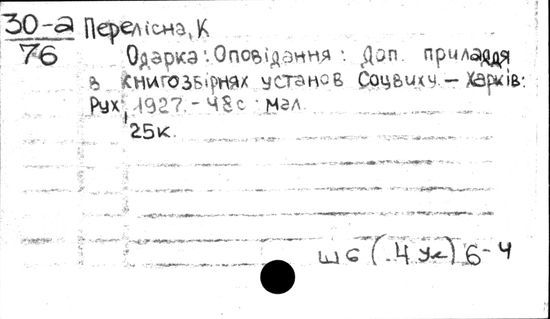 30-а Перелісна, К
76 Одарка: Оповідання: Доп. приладдя
в книгозбірнях установ Соцвиху. – Харків:
Рух, 1927. – 48с. мал.
25к.
Ш6 (.4 Ук) 6-4